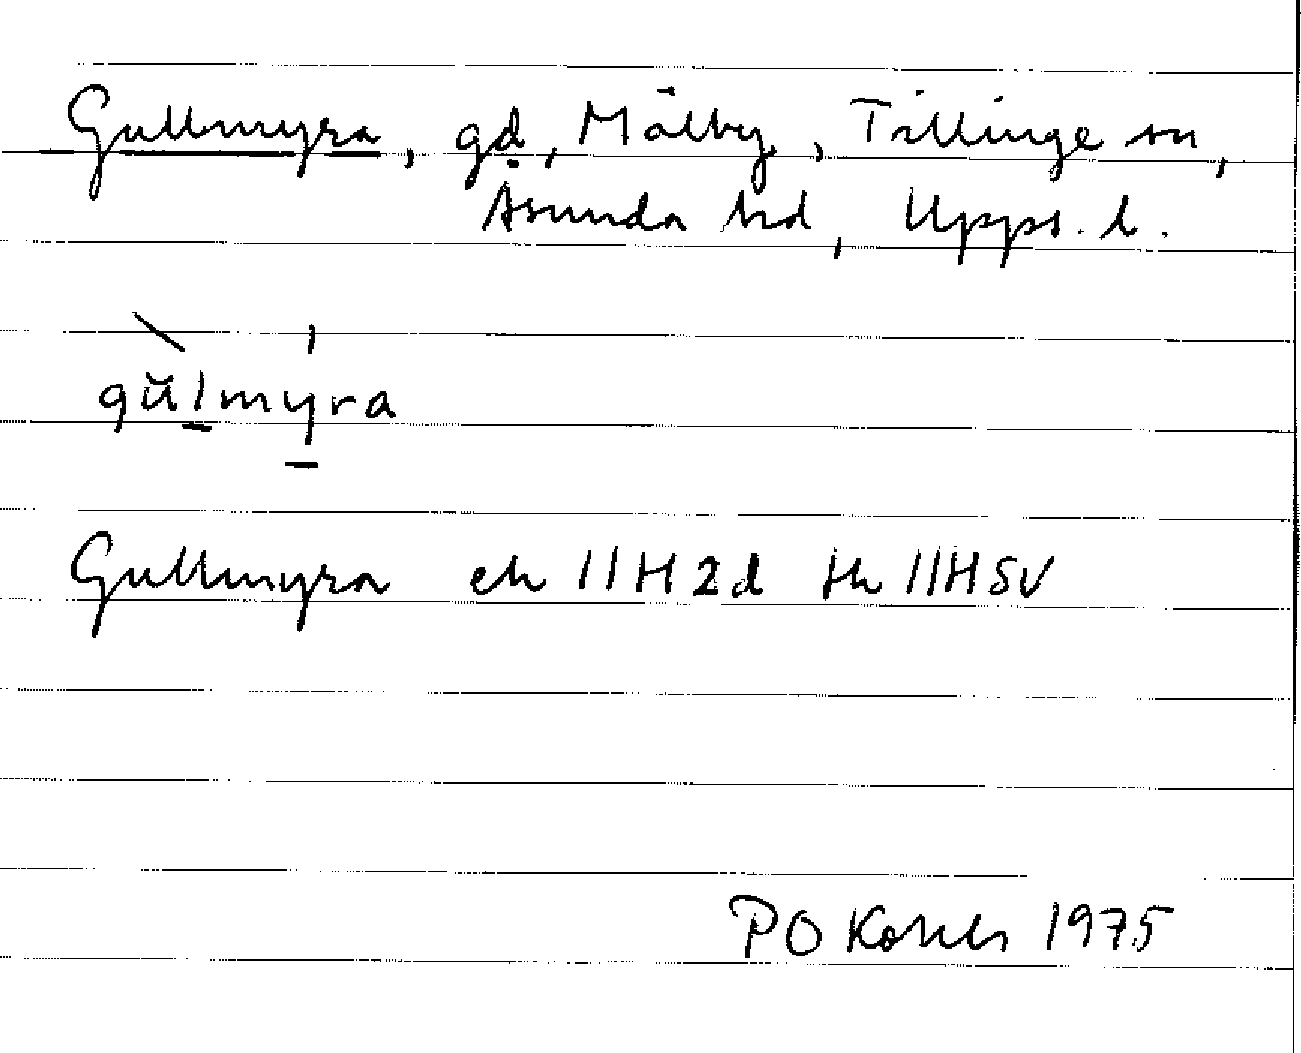 Gullmyra, gd, Mälby, Tillinge sn,
Åsunda hd, Upps. l.
gŭlmyra
Gullmyra ek 11H2d tk 11HSV
PO 1975